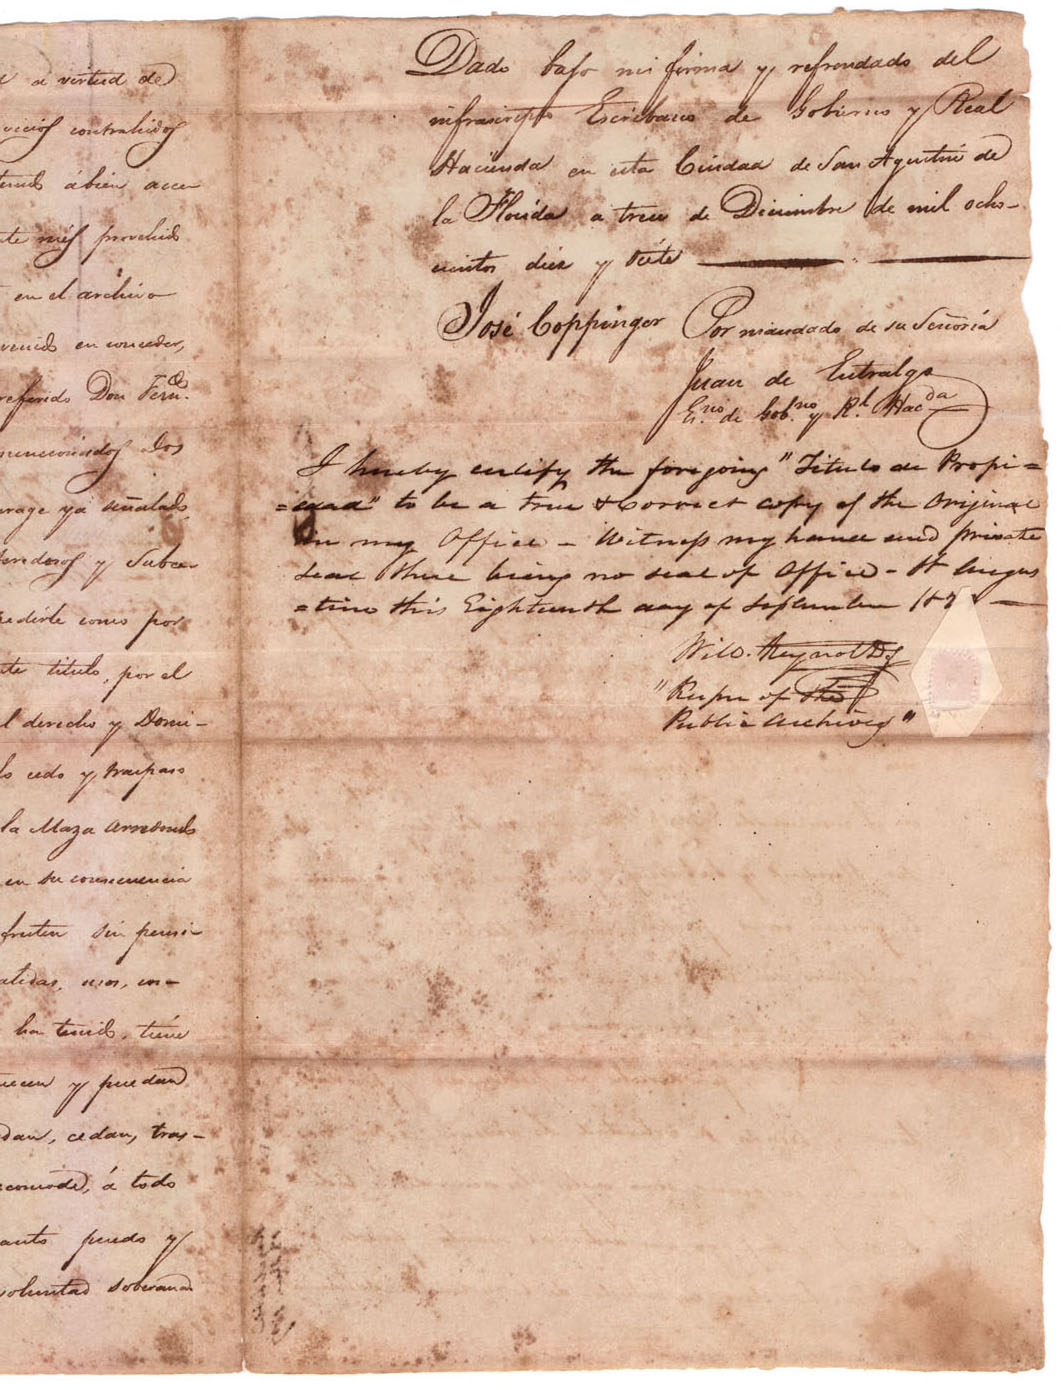 a virtud de
vicios contrahidos
tenido ábien acce
te més provehido
en el archivo
venido en conceder,
referido Don Fern.do
mencionados dos
urage yá señalado,
erederos y subce-
pedirle como por
te titulo, por el
l derecho y Domi-
lo cedo y traspaso
la Maza Arredondo
en su consecuencia
fruten sin pensi-
alidas, usos, cos-
ha tenido, tiéne
necen y puedan
dan, cedan, tras-
acomode, á todo
anto puedo y
voluntad soberana
Dado bajo mi firma y refrendado del
infrascripto Escribano de Gobierno y Real
Hacienda en esta Ciudad de San Agustin de
la Florida a trece de Diciembre de mil ocho-
cientos diez y siéte
José Coppinger Por mandado de su Señoría
Juan de Entralgo
Es.no de Gob.no y R.l Hac.da
I hereby certify the foregoing "Titulo de Propi=
=edad" to be a true & correct copy of the Original
in my Office - Witness my hand and private
seal there being no seal of Office - St Augus
=tine this Eighteenth day of September
Will. Reynolds
"Keeper of the
Public Archives"